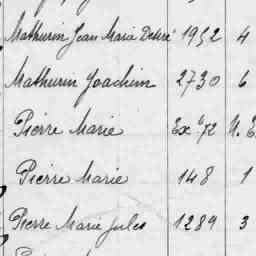 Mathurin Jean Marie Désiré 1952 4
Mathurin Joachim 2730 6
Pierre Marie Ex 72 N.
Pierre Marie 148 1
Pierre Marie Jules 1289 3